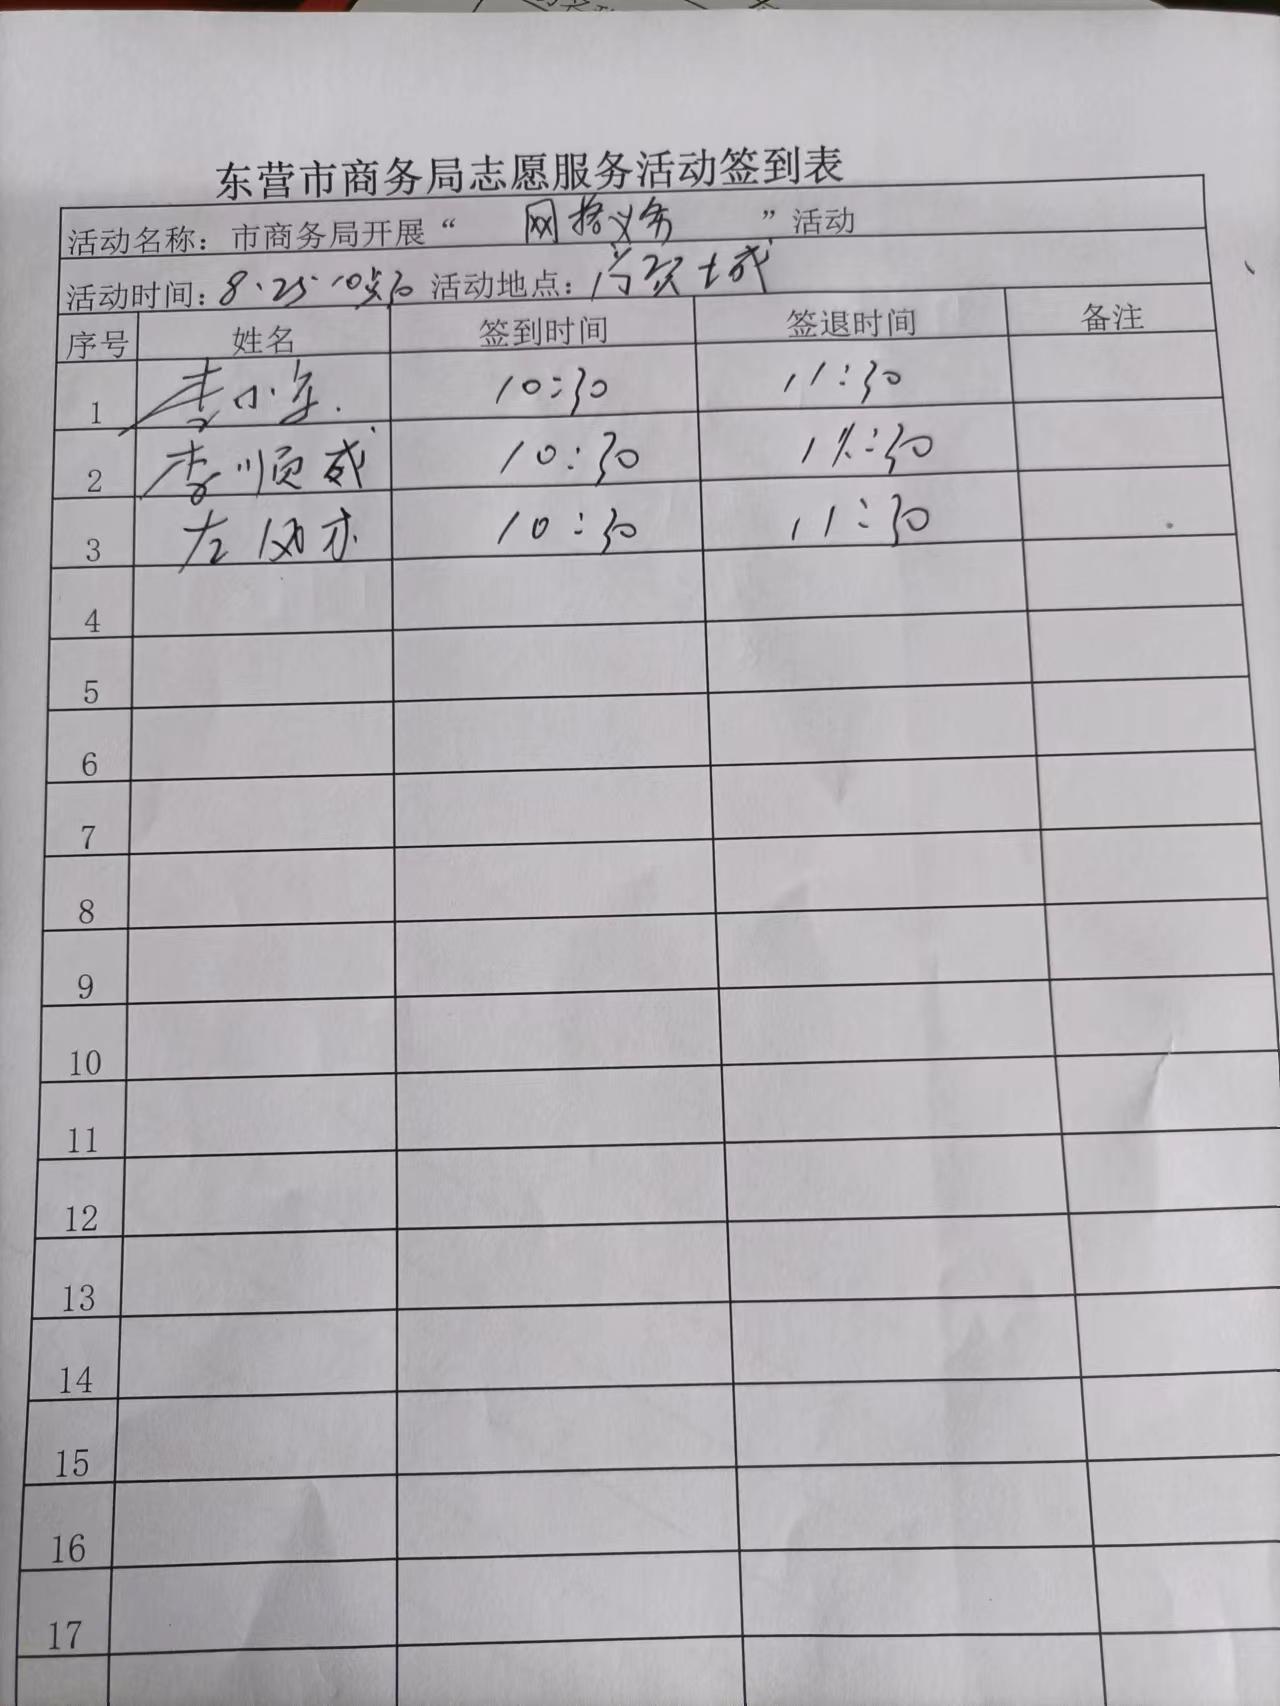 东营市商务局志愿服务活动签到表
活动名称：市商务局开展“网格义务”活动
活动时间：8.25 10点30 活动地点：城
序号 姓名 签到时间 签退时间 备注
1 李小军. 10:30 11:30
2 李顺成 10:30 11:30
3 左 10:30 11:30
4
5
6
7
8
9
10
11
12
13
14
15
16
17